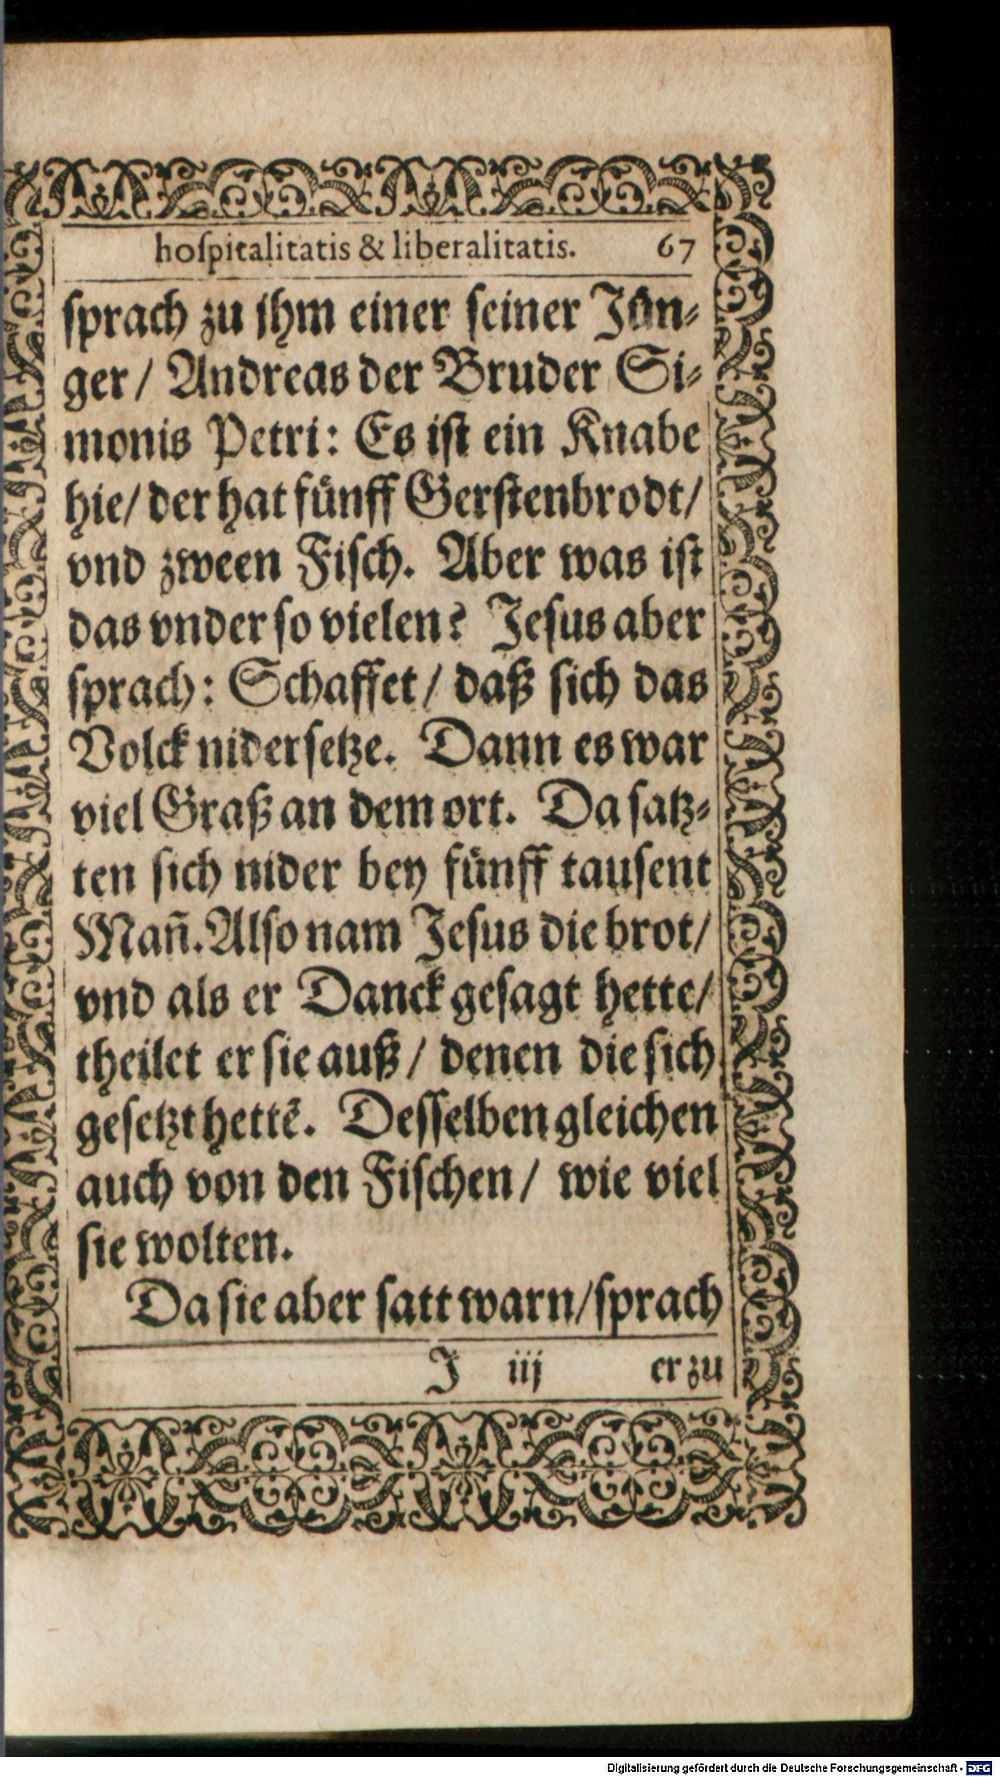 hoſpitalitatis & liberalitatis. 67
ſprach zu jhm einer ſeiner Jün⸗
ger / Andreas der Bruder Si⸗
monis Petri: Es iſt ein Knabe
hie/ der hat fünff Gerſtenbrodt/
vnd zween Fiſch. Aber was iſt
das vnder ſo vielen? Jeſus aber
ſprach: Schaffet / daß ſich das
Volck niderſetze. Dann es war
viel Graß an dem ort. Da ſatz⸗
ten ſich nider bey fünff tauſent
Mañ. Alſo nam Jeſus die brot/
vnd als er Danck geſagt hette/
theilet er ſie auß / denen die ſich
geſetzt hettẽ. Deſſelben gleichen
auch von den Fiſchen / wie viel
ſie wolten.
Da ſie aber ſatt warn/ſprach
J iij er zu
Digitalisierung gefördert durch die Deutsche Forschungsgemeinschaft - DFG